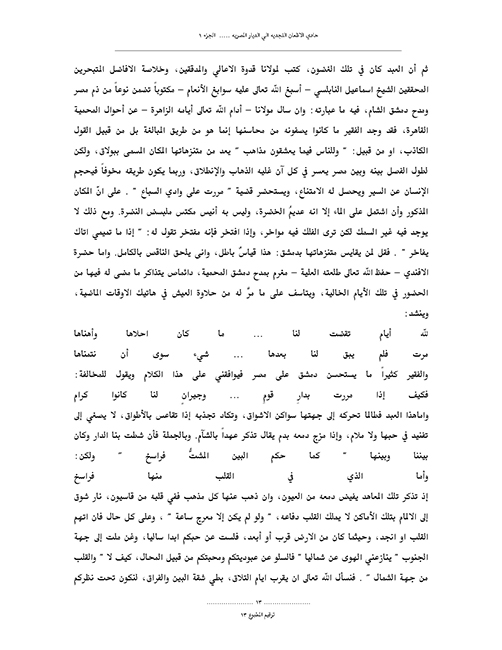 حادي الاظعان النجديه الي الديار المصريه ..... الجزء ١
ثم أن العبد كان في تلك الغضون، كتب لمولانا قدوة الاعالي والمدققين، وخلاصة الافاضل المتبحرين
المحققين الشيخ اسماعيل النابلسي – أسبغ الله تعالى عليه سوابغ الأنعام – مكتوباً تضمن نوعاً من ذم مصر
ومدح دمشق الشام، فيه ما عبارته: وان سال مولانا – أدام الله تعالى أيامه الزاهرة – عن أحوال المحمية
القاهرة، فقد وجد الفقير ما كانوا يصفونه من محاسنها إنما هو من طريق المبالغة بل من قبيل القول
الكاذب، او من قبيل: " وللناس فيما يعشقون مذاهب " يعد من متنزهاتها المكان المسمى ببولاق، ولكن
لطول الفصل بينه وبين مصر يعسر في كل آن غليه الذهاب والإنطلاق، وربما يكون طريقه مخوفاً فيحجم
الإنسان عن السير ويحصل له الامتناع، ويستحضر قضية " مررت على وادي السباع " . على انّ المكان
المذكور وأن اشتمل على الماء إلا انه عديمُ الخضرة، وليس به أنيس مكتس ملبسض النضرة. ومع ذلك لا
يوجد فيه غير السمك لكن ترى الفلك فيه مواخر، وإذا افتخر فإنه مفتخر تقول له: " إذا ما تميمي اتاك
يفاخر " . فقل لمن يقايس متنزهاتها بدمشق: هذا قياسٌ باطل، واني يلحق الناقص بالكامل. واما حضرة
الافندي – حفظ الله تعالى طلعته العلية – مغرم بمدح دمشق المحمية، دائماص يتذاكر ما مضى له فيها من
الحضور في تلك الأيام الخالية، ويتاسف على ما مرّ له من حلاوة العيش في هاتيك الاوقات الماضية،
وينشد:
لله أيام تقضت لنا ... ما كان احلاها وأهناها
مرت فلم يبق لنا بعدها ... شيء سوى أن نتمناها
والفقير كثيراً ما يستحسن دمشق على مصر فيوافقني على هذا الكلام ويقول للمخالفة:
فكيف إذا مررت بدارِ قوم ... وجيرانٍ لنا كانوا كرام
واماهذا العبد فطالما تحركه إلى جهتها سواكن الاشواق، وتكاد تجذبه إذا تقاعس بالأطواق، لا يصغي إلى
تفنيد في حبها ولا ملام، وإذا مزج دمعه بدم يقال تذكر عهداً بالشآم. وبالجملة فأن شطت بنا الدار وكان
بيننا وبينها " كما حكم البين المشتُّ فراسخ " ولكن:
وأما الذي في القلب منها فراسخ
إذ تذكر تلك المعاهد يفيض دمعه من العيون، وان ذهب عنها كل مذهب ففي قلبه من قاسيون، نار شوق
إلى الالمام بتلك الأماكن لا يملك القلب دفاعه، " ولو لم يكن إلا معرج ساعة " ، وعلى كل حال فان اتهم
القلب او انجد، وحيثما كان من الارض قرب أو أبعد، فلست عن حبكم ابدا ساليا، وغن ملت إلى جهة
الجنوب " ينازعني الهوى عن شماليا " فالسلو عن عبوديتكم ومحبتكم من قبيل المحال، كيف لا " والقلب
من جهة الشمال " . فنسأل الله تعالى ان يقرب ايام التلاق، بطي شقة البين والفراق، لنكون تحت نظركم
...................... ١٣ ......................
ترقيم المشروع ١٣